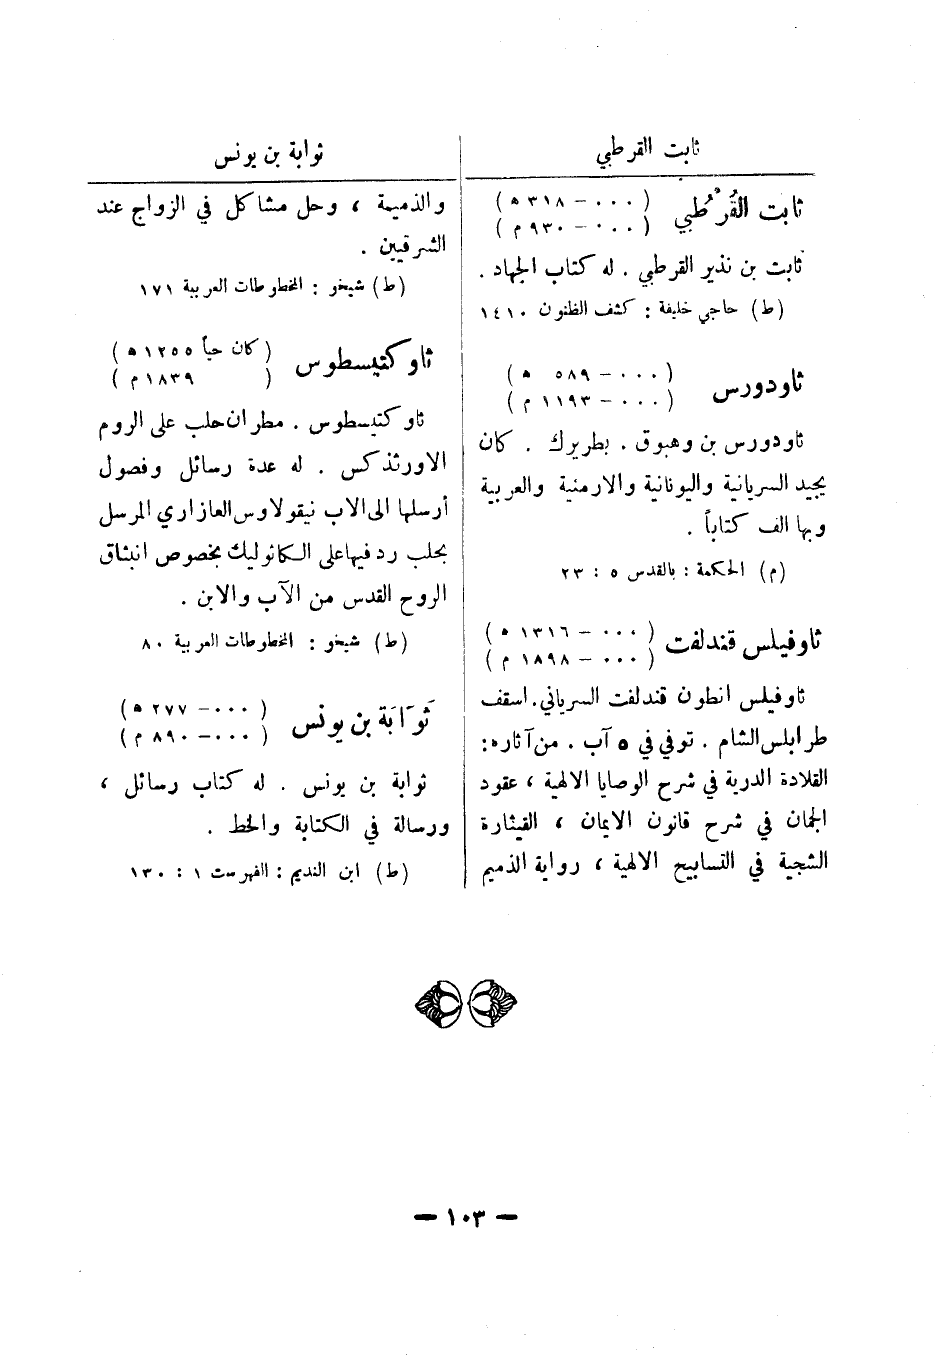 ثابت القرطبي
ثابت القُرْطُبي
( ٠٠٠ - ٣١٨ ه )
( ٠٠٠ - ٩٣٠ م )
ثابت بن نذير القرطبي . له كتاب الجهاد .
(ط) حاجي خليفة : كشف الظنون ١٤١٠
ثاودورس
( ٠٠٠ - ٥٨٩ ه )
( ٠٠٠ - ١١٩٣ م )
ثاودورس بن وهبوق . بطريرك . كان
يجيد السريانية واليونانية والارمنية والعربية
وبها الف كتاباً .
(م) الحكمة : بالقدس ٥ : ٢٣
ثاوفيلس قندلفت
( ٠٠٠ - ١٣١٦ ه )
( ٠٠٠ - ١٨٩٨ م )
ثاوفيلس انطون قندلفت السرياني . اسقف
طرابلس الشام . توفي في ٥ آب . من آثاره :
القلادة الدرية في شرح الوصايا الالهية ، عقود
الجمان في شرح قانون الايمان ، القيثارة
الشجية في التسابيح الالهية ، رواية الذميم
ثوابة بن يونس
والذميمة ، وحل مشاكل في الزواج عند
الشرقيين .
(ط) شيخو : المخطوطات العربية ١٧١
ثاوكتيسطوس
( كان حياً ١٢٥٥ ه )
( ١٨٣٩ م )
ثاوكتيسطوس . مطران حلب على الروم
الاورثذكس . له عدة رسائل وفصول
أرسلها الى الاب نيقولاوس العازاري المرسل
بحلب رد فيها على الكاثوليك بخصوص انبثاق
الروح القدس من الآب والابن .
(ط) شيخو : المخطوطات العربية ٨٠
ثَوَابَة بن يونس
( ٠٠٠ - ٢٧٧ ه )
( ٠٠٠ - ٨٩٠ م )
ثوابة بن يونس . له كتاب رسائل ،
ورسالة في الكتابة والخط .
(ط) ابن النديم : الفهرست ١ : ١٣٠
— ١٠٣ —